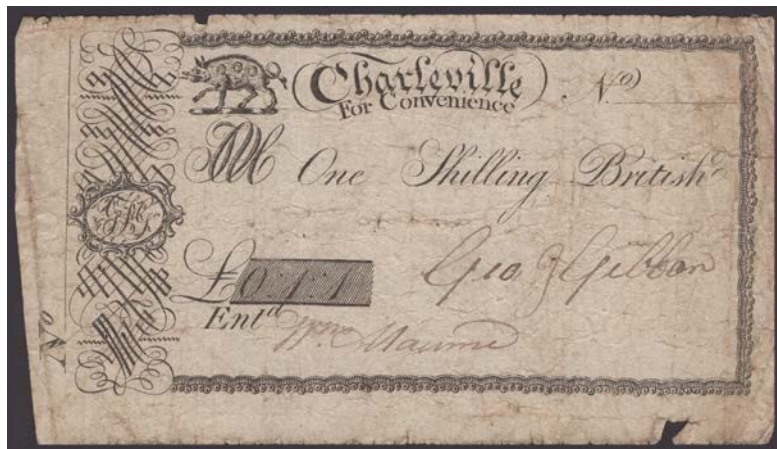 Charleville
For Convenience
No
One Shilling British
£0:1:1
Geo J Gibbon
Entd
Wm Maume
No